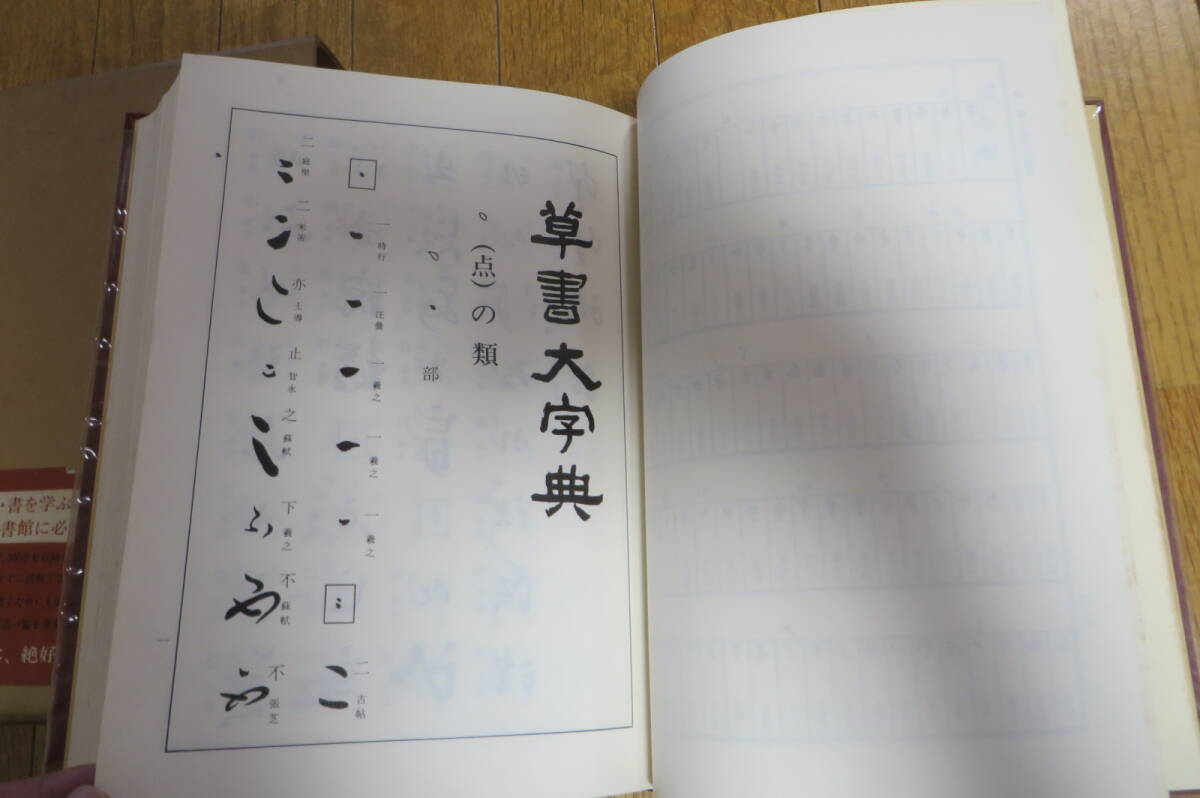 草書大字典
(点)の類
部
一 時行
一 汪曇
一 羲之
一 羲之
一 羲之
二 古帖
二 庭堅
二 米芾
亦 王導
止 智永
之 蘇軾
下 羲之
不 蘇軾
不 張芝
一
・書を学ぶ
書館に必
絶好